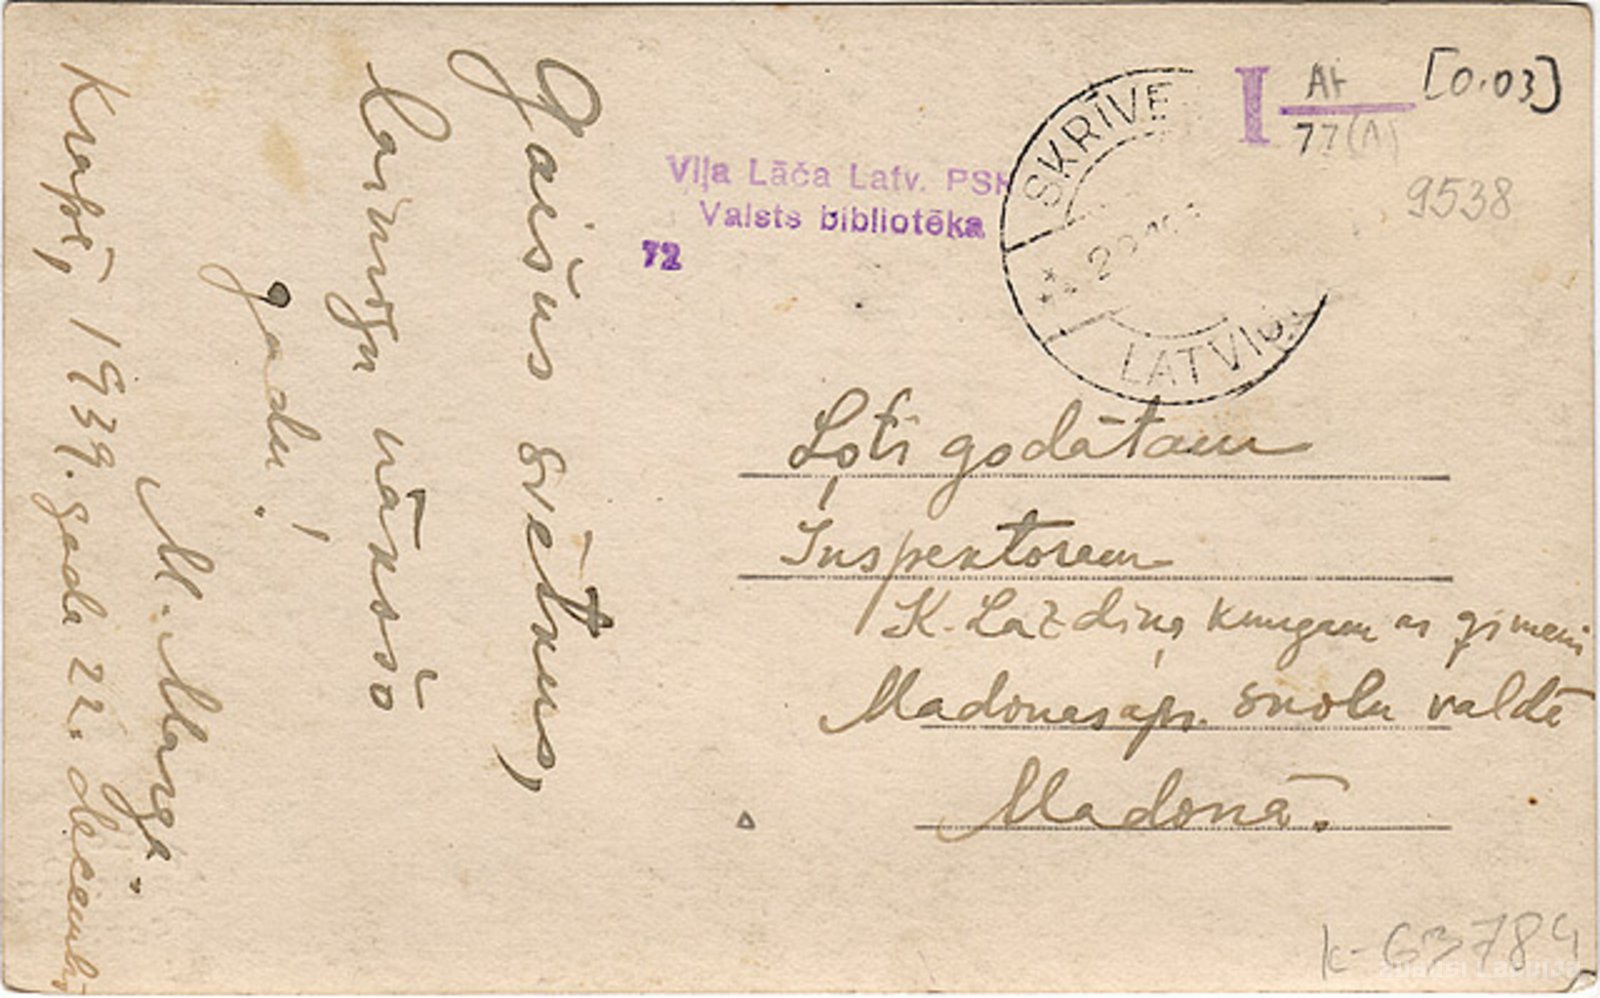 Gaišus svētkus,
laimīgu nākošo
gadu!
M. Marga.
Krapē, 1939. gada 22. decembrī
Viļa Lāča Latv. PSR
Valsts bibliotēka
72
SKRĪVE
LATVIJA
I At [0.03]
77(A)
9538
Ļoti godātam
Inspektoram
K. Lazdiņa kungam ar ģimeni
Madonas apr. skolu valdē
Madonā.
k-63784
zudusi Latvija